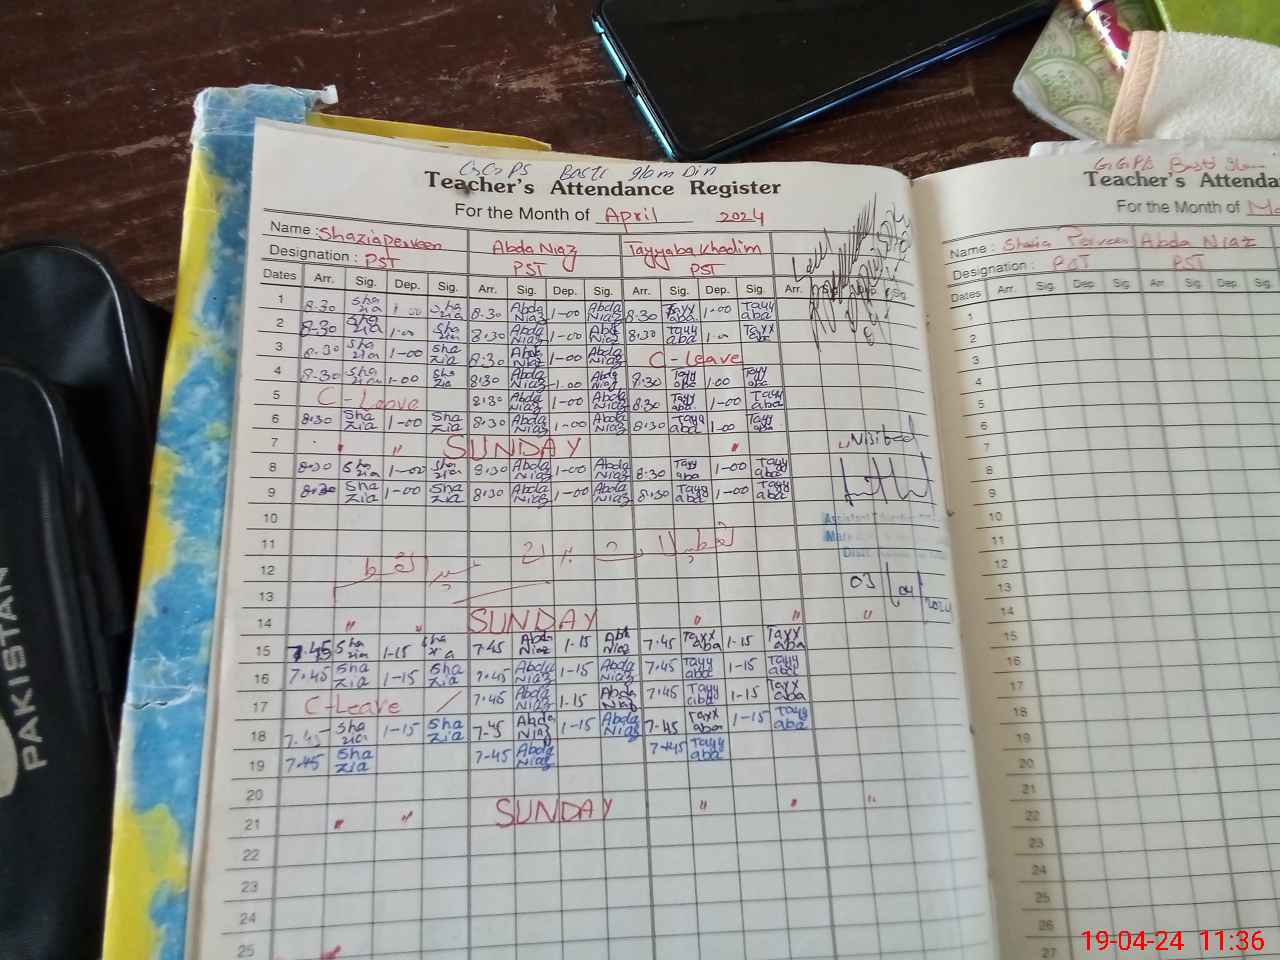 GGPS Basti glam Din
Teacher's Attendance Register
For the Month of April 2024
Name : Shazia Perveen Abda Niaz Tayyaba Khadim
Designation : PST PST PST
Dates Arr. Sig. Dep. Sig. Arr. Sig. Dep. Sig. Arr. Sig. Dep. Sig. Arr. Sig.
1 8.30 Sha zia 1-00 Sha zia 8.30 Abda Niaz 1-00 Abda Niaz 8.30 Tayy aba 1-00 Tayy aba
2 8.30 Sha zia 1-00 Sha zia 8.30 Abda Niaz 1-00 Abda Niaz 8.30 Tayy aba 1-00 Tayy aba
3 8.30 Sha zia 1-00 Sha zia 8.30 Abda Niaz 1-00 Abda Niaz C-Leave
4 8.30 Sha zia 1-00 Sha zia 8.30 Abda Niaz 1-00 Abda Niaz 8.30 Tayy aba 1-00 Tayy aba
5 C-Leave 8.30 Abda Niaz 1-00 Abda Niaz 8.30 Tayy aba 1-00 Tayy aba
6 8.30 Sha zia 1-00 Sha zia 8.30 Abda Niaz 1-00 Abda Niaz 8.30 Tayy aba 1-00 Tayy aba
7 " " SUNDAY " "
8 8.30 Sha zia 1-00 Sha zia 8.30 Abda Niaz 1-00 Abda Niaz 8.30 Tayy aba 1-00 Tayy aba
9 8.30 Sha zia 1-00 Sha zia 8.30 Abda Niaz 1-00 Abda Niaz 8.30 Tayy aba 1-00 Tayy aba
10
11
12
13 03
14 " " SUNDAY " " "
15 7.45 Sha zia 1-15 Sha zia 7.45 Abda Niaz 1-15 Abda Niaz 7.45 Tayy aba 1-15 Tayy aba
16 7.45 Sha zia 1-15 Sha zia 7.45 Abda Niaz 1-15 Abda Niaz 7.45 Tayy aba 1-15 Tayy aba
17 C-Leave 7.45 Abda Niaz 1-15 Abda Niaz 7.45 Tayy aba 1-15 Tayy aba
18 7.45 Sha zia 1-15 Sha zia 7.45 Abda Niaz 1-15 Abda Niaz 7.45 Tayy aba 1-15 Tayy aba
19 7.45 Sha zia 7.45 Abda Niaz 7.45 Tayy aba
20
21 " " SUNDAY " " "
22
23
24
25
GGPS Basti
Teacher's Attenda
For the Month of Ma
Name : Shazia Perveen Abda Niaz
Designation : PST PST
Dates Arr. Sig. Dep. Sig. Arr. Sig. Dep.
1
2
3
4
5
6
7
8
9
10
11
12
13
14
15
16
17
18
19
20
21
22
23
24
25
26
27
PAKISTAN
19-04-24 11:36